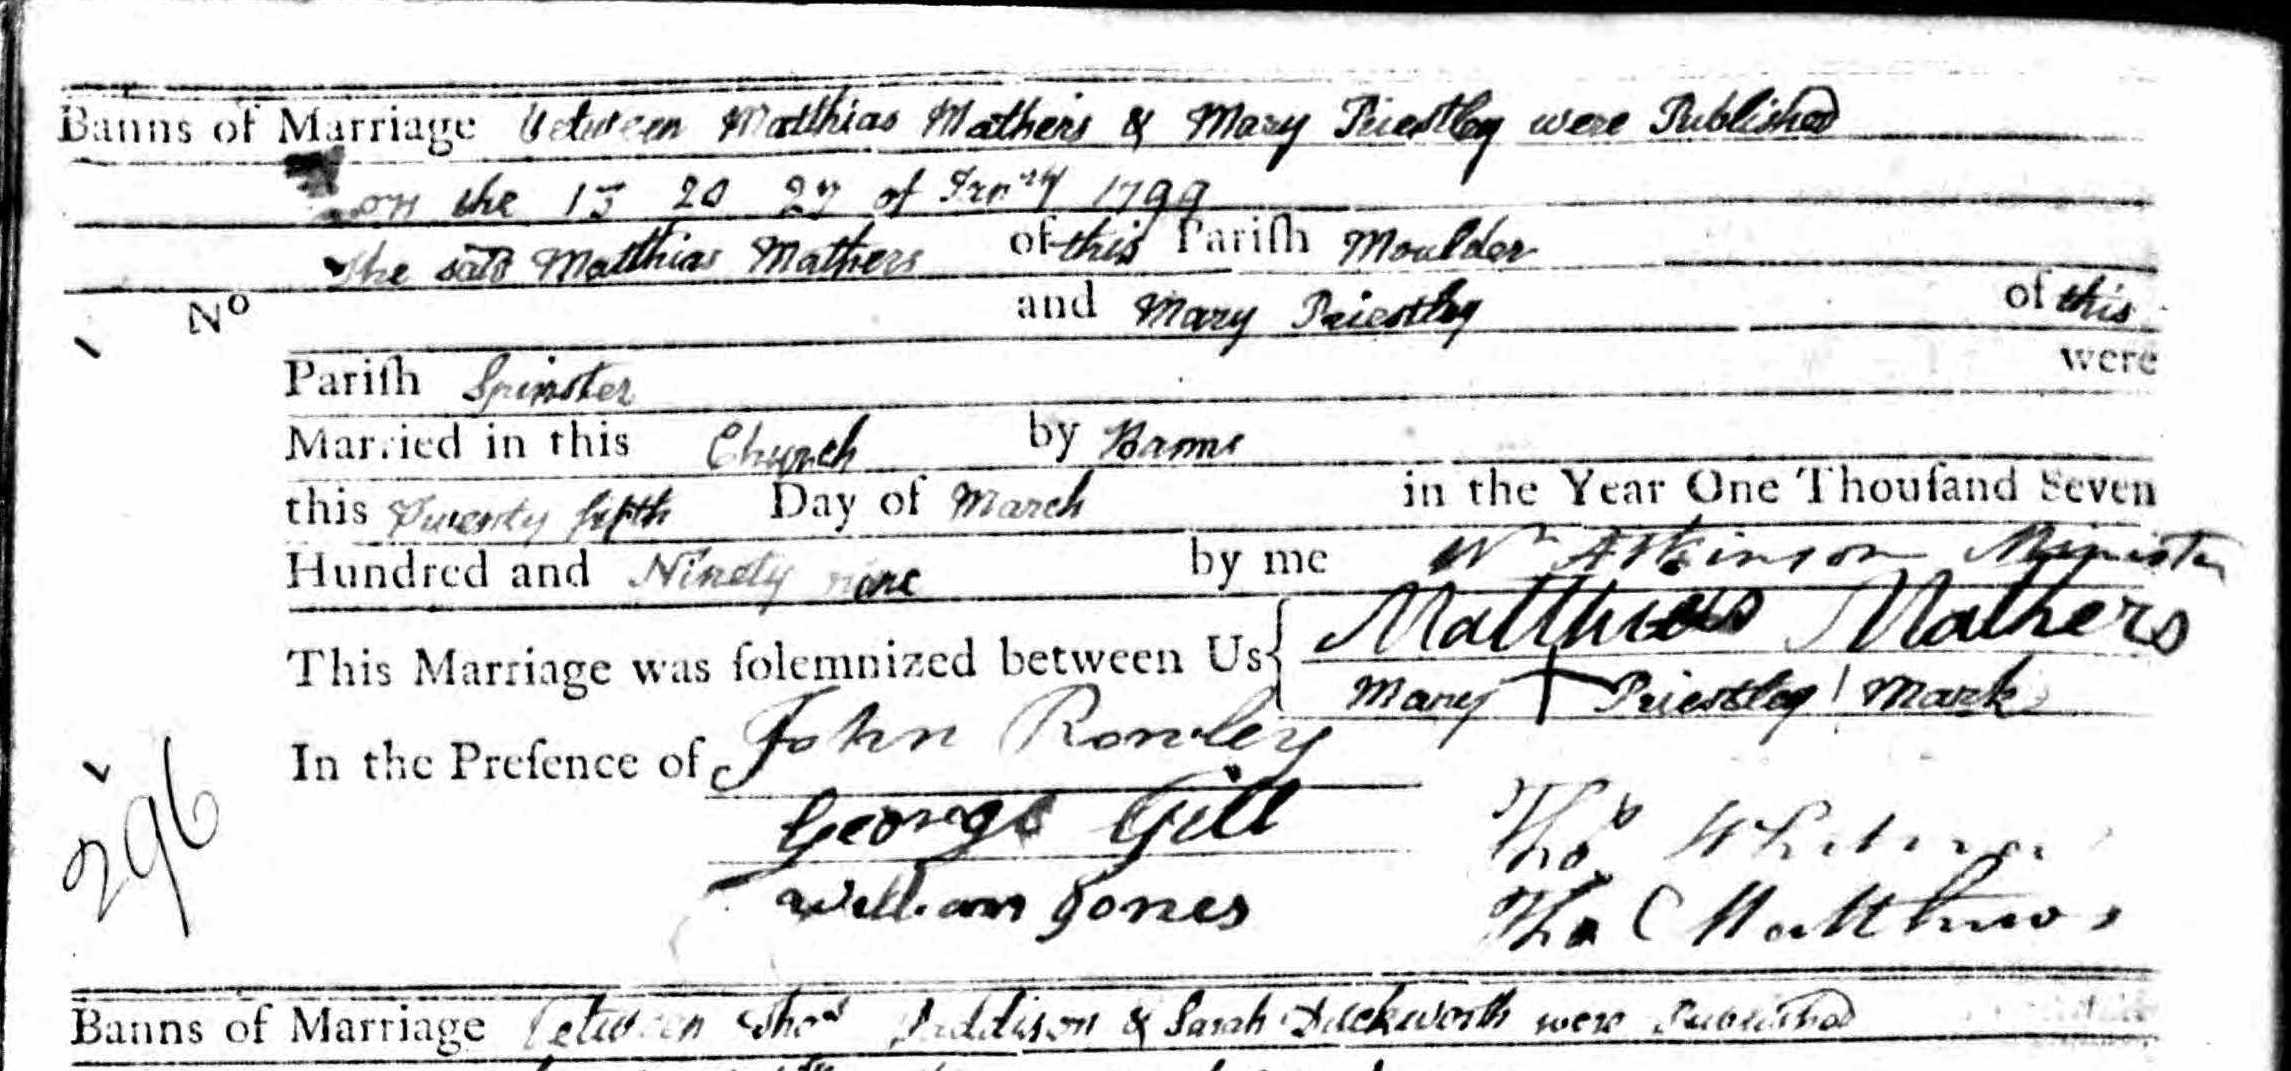 Banns of Marriage between Matthias Mathers & Mary Priestley were Published
on the 13 20 27 of Jan^ry 1799
The said Matthias Mathers of this Pariſh Moulder
N° and Mary Priestley of this
Pariſh Spinster were
Married in this Church by Banns
this Twenty fifth Day of March in the Year One Thouſand Seven
Hundred and Ninety nine by me W^m Atkinson Minister
This Marriage was ſolemnized between Us Matthias Mathers
Mary + Priestley / Mark
In the Preſence of John Rowley
George Gill Tho^s
William Jones Tho^s Matthews
296
Banns of Marriage between Tho^s Addison & Sarah Duckworth were Published